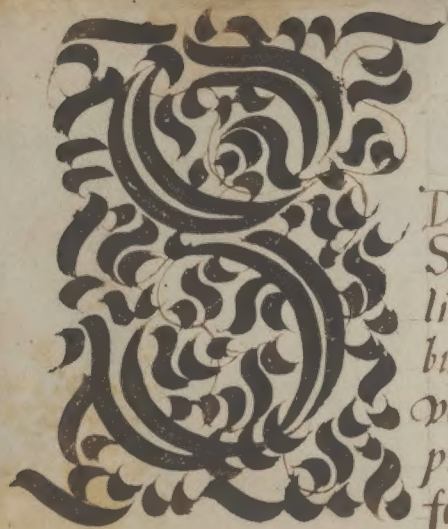 S
D
S
li
bi
v
p
f